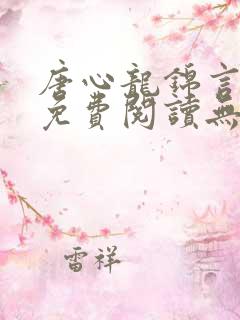 唐心龍錦言
免費閱讀無
雷祥